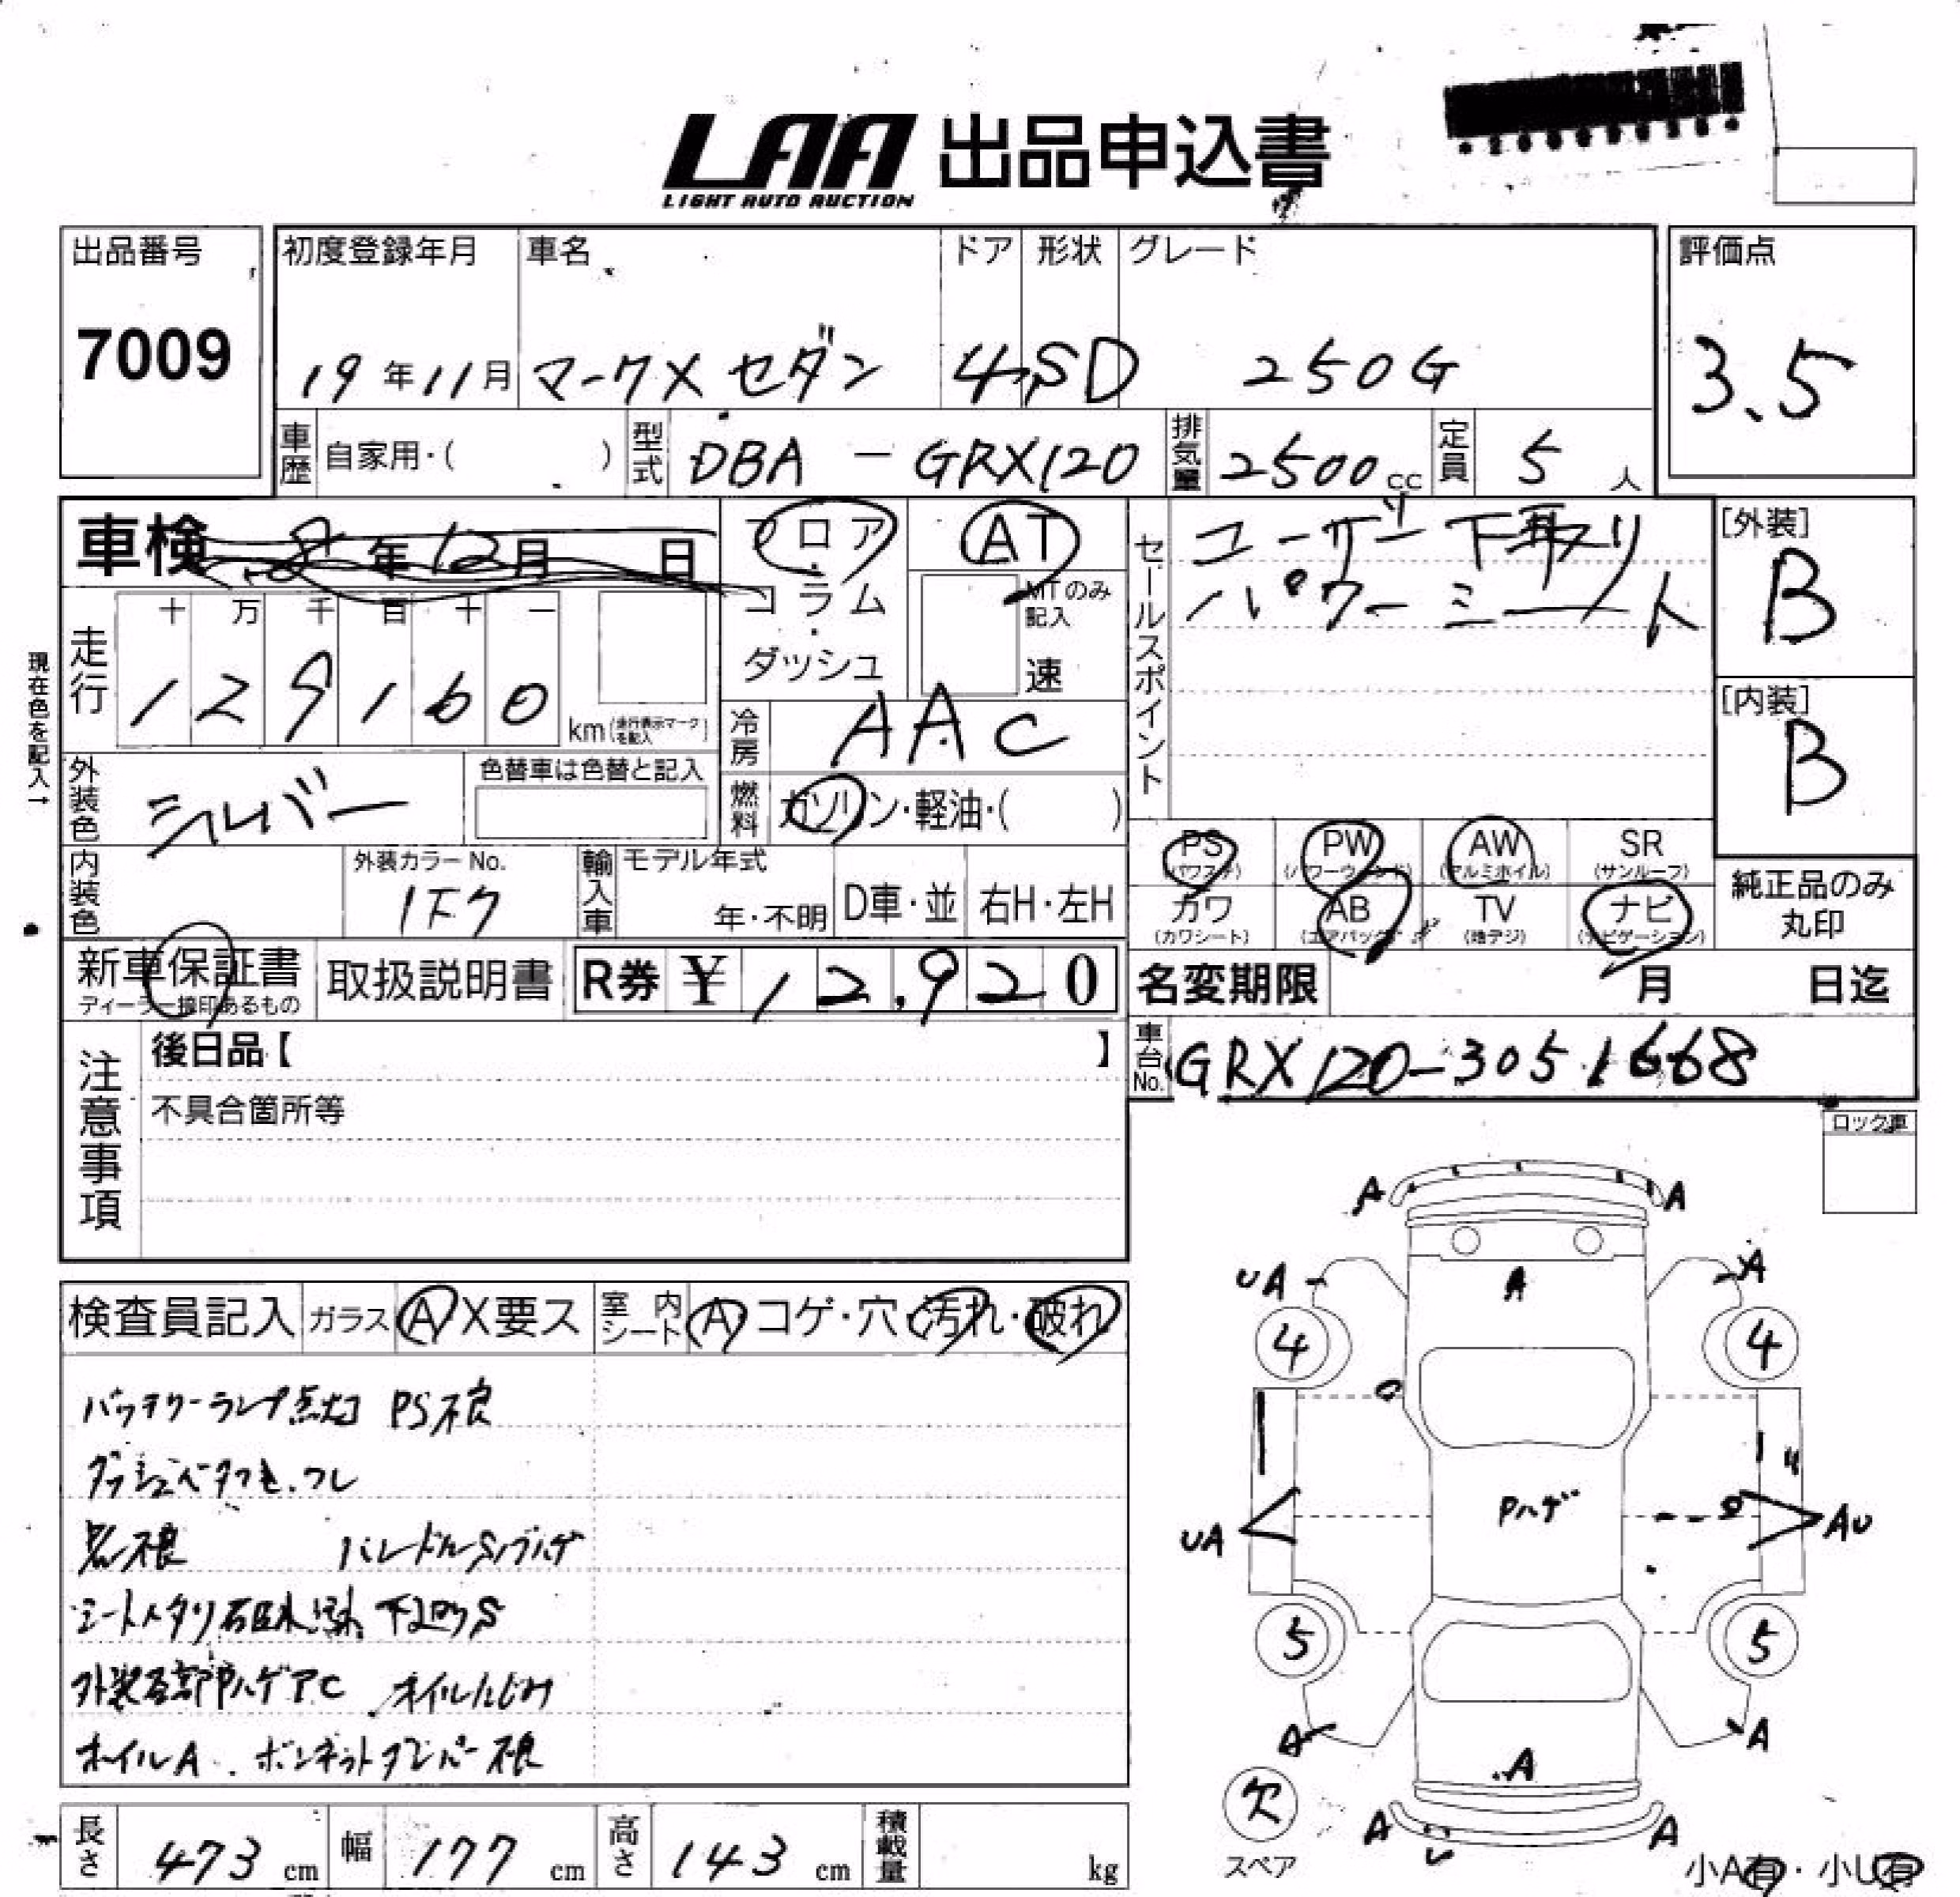 LAA 出品申込書
LIGHT AUTO AUCTION
出品番号
7009
初度登録年月
19年11月
車名
マークX セダン
ドア
4
形状
SD
グレード
250G
評価点
3.5
車歴 自家用・( )
型式 DBA - GRX120
排気量 2500cc
定員 5人
車検 年12月 日
フロア
コラム
ダッシュ
AT
MTのみ記入
速
セールスポイント
ユーザー下取り
パワーシート
[外装]
B
[内装]
B
現在色を記入→
走行
十 万 千 百 十 一
1 2 9 1 6 0
km(走行表示マークを記入)
冷房 AAC
外装色 シルバー
色替車は色替と記入
燃料 ガソリン・軽油・( )
内装色
外装カラーNo.
1F7
輸入車
モデル年式
年・不明
D車・並
右H・左H
PS (パワステ)
PW (パワーウィンド)
AW (アルミホイル)
SR (サンルーフ)
カワ (カワシート)
AB (エアバッグ)
TV (地デジ)
ナビ (ナビゲーション)
純正品のみ
丸印
新車保証書
ディーラー捺印あるもの
取扱説明書
R券 ¥12,920
名変期限 月 日迄
車台No. GRX120-3051668
注意事項
後日品【 】
不具合箇所等
ロック車
検査員記入
ガラス A X要ス
室内シート A コゲ・穴・汚れ・破れ
バッテリーランプ点灯 PS不良
不良 ハンドルSハゲ
下回りS
外装各部ハゲAC オイルにじみ
ホイルA ボンネットダンパー不良
A A
UA A
A
4 4
UA Pハゲ AU
5 5
A A
A
欠
スペア
A A
U
小A有・小U有
長さ 473cm
幅 177cm
高さ 143cm
積載量 kg